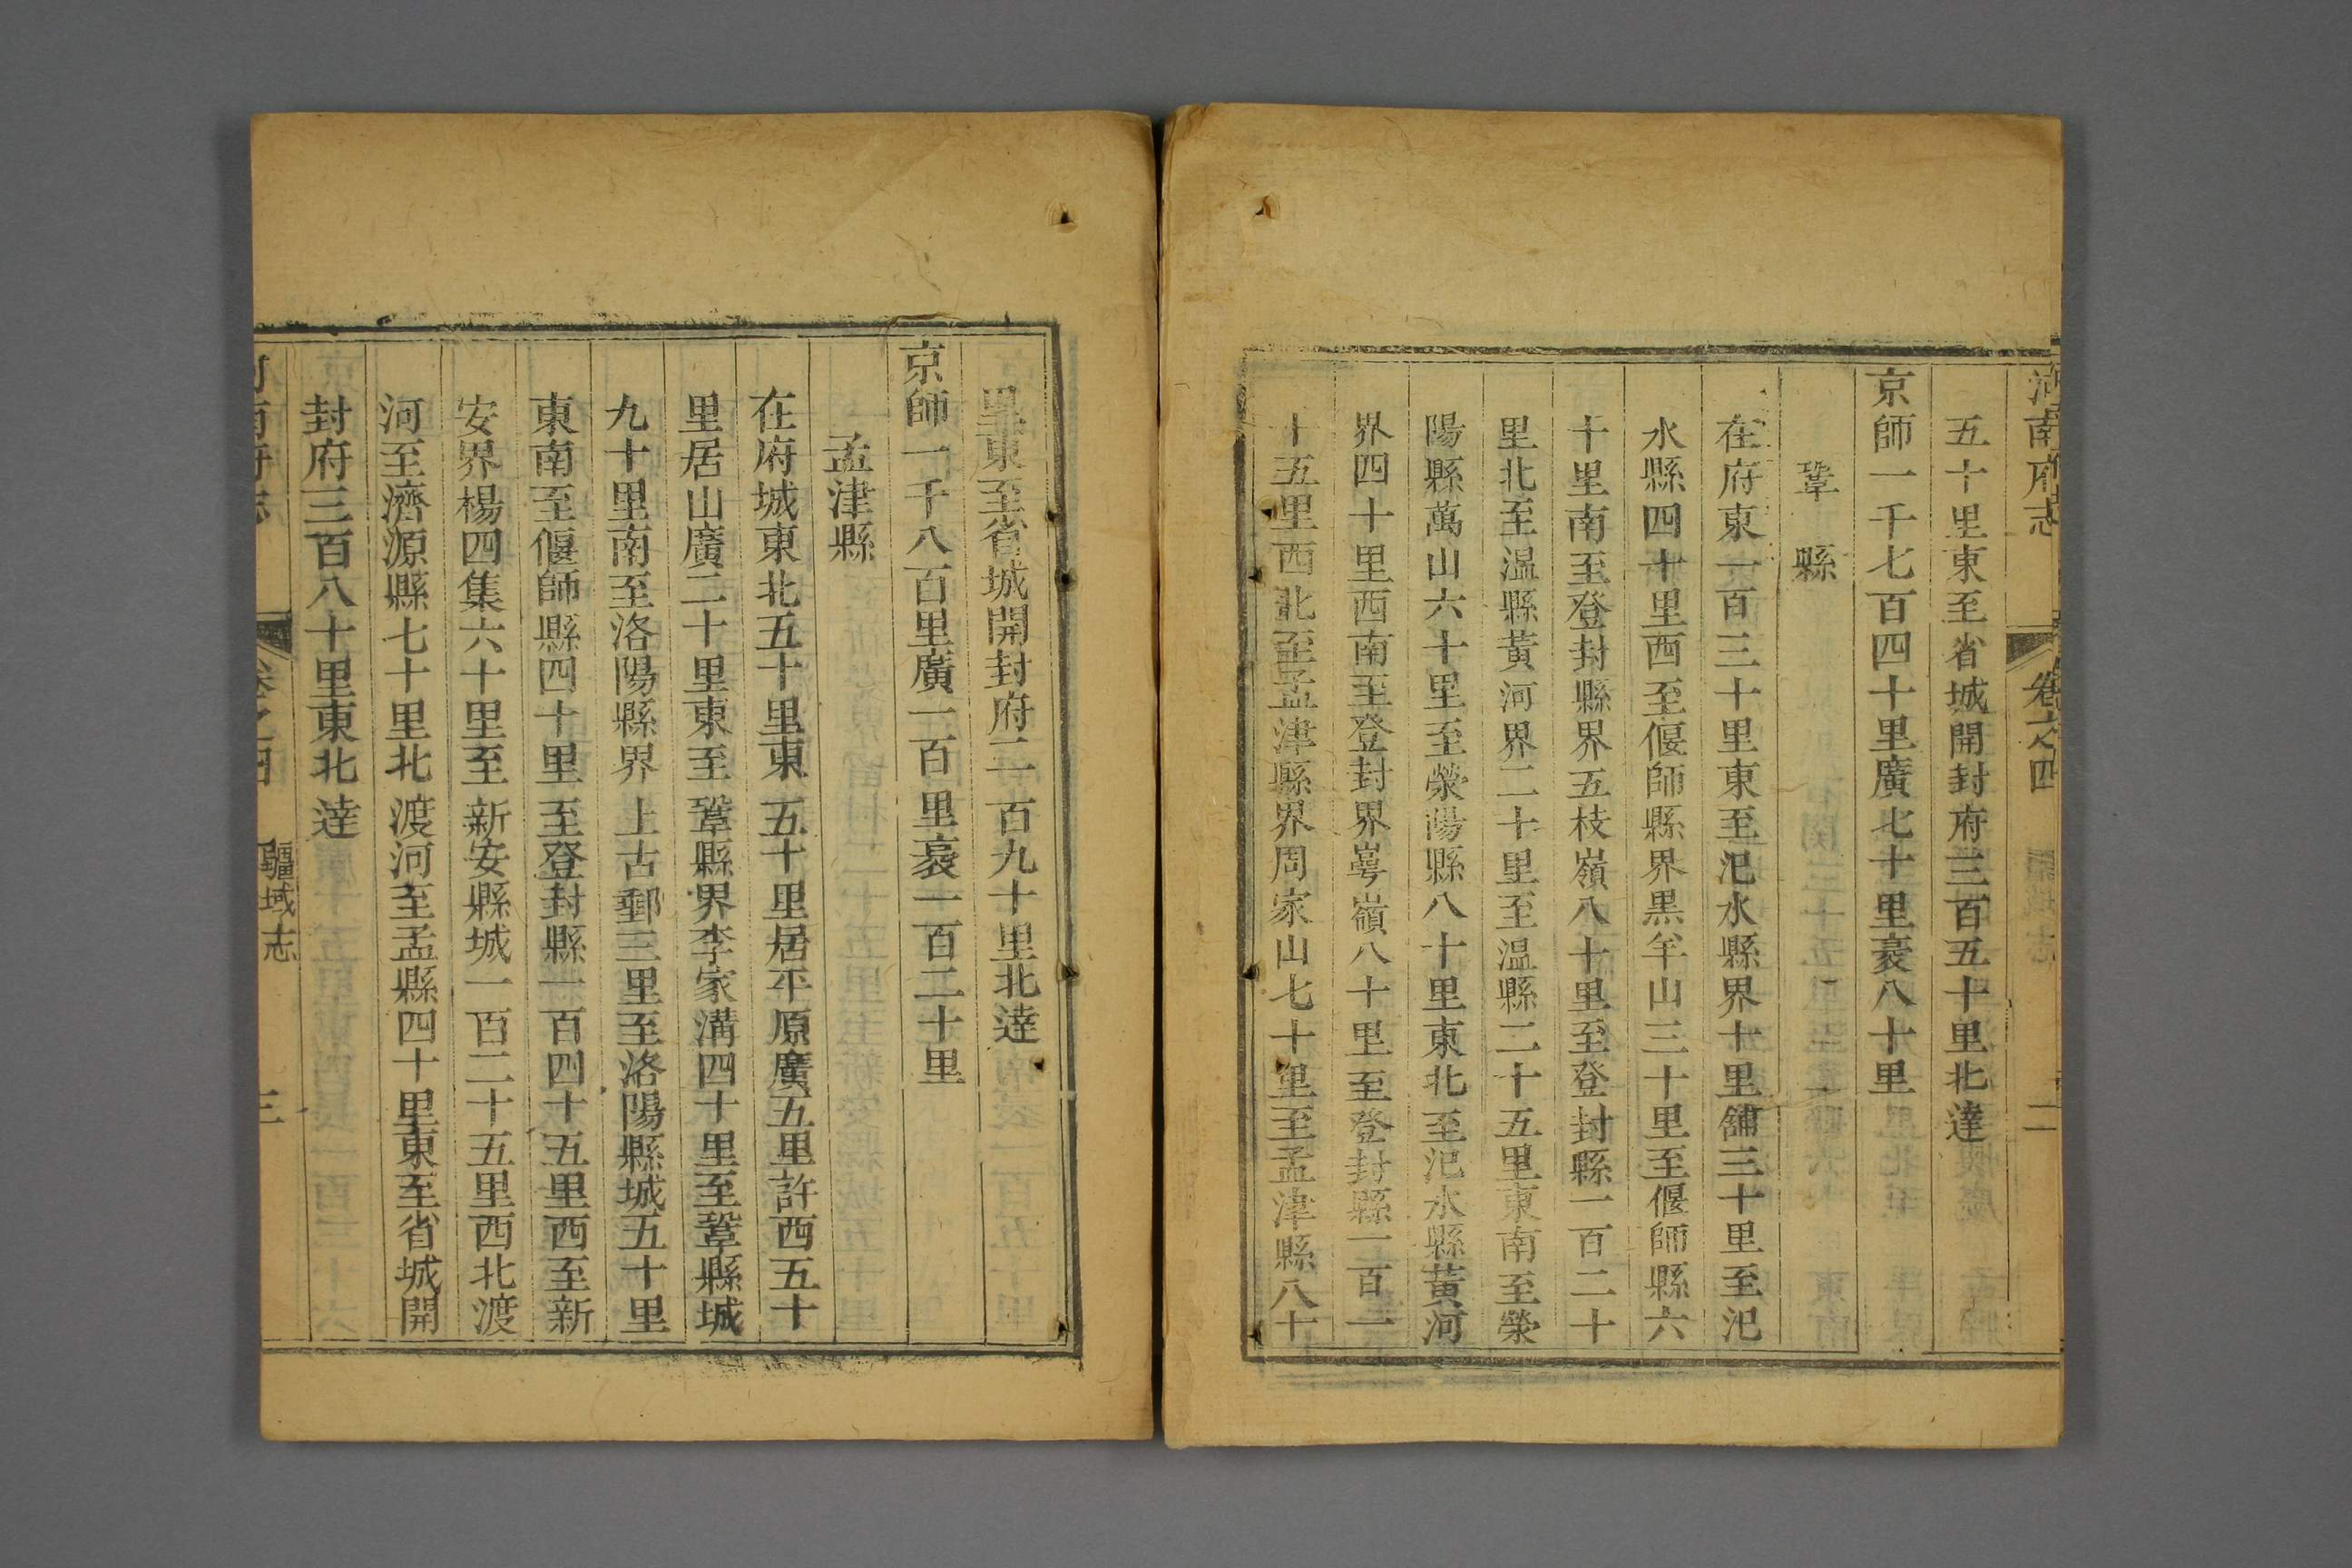 河南府志 卷之四 二
五十里東至省城開封府三百五十里北達
京師一千七百四十里廣七十里袤八十里
鞏縣
在府東一百三十里東至汜水縣界十里舖三十里至汜
水縣四十里西至偃師縣界黑羊山三十里至偃師縣六
十里南至登封縣界五枝嶺八十里至登封縣一百二十
里北至溫縣黃河界二十里至溫縣二十五里東南至滎
陽縣萬山六十里至滎陽縣八十里東北至汜水縣黃河
界四十里西南至登封界崿嶺八十里至登封縣一百二
十五里西北至孟津縣界周家山七十里至孟津縣八十
里東至省城開封府二百九十里北達
京師一千八百里廣一百里袤一百二十里
孟津縣
在府城東北五十里東五十里居平原廣五里許西五十
里居山廣二十里東至鞏縣界李家溝四十里至鞏縣城
九十里南至洛陽縣界上古鄆三里至洛陽縣城五十里
東南至偃師縣四十里至登封縣一百四十五里西至新
安界楊四集六十里至新安縣城一百二十五里西北渡
河至濟源縣七十里北渡河至孟縣四十里東至省城開
封府三百八十里東北達
河南府志 卷之四 疆域志 三